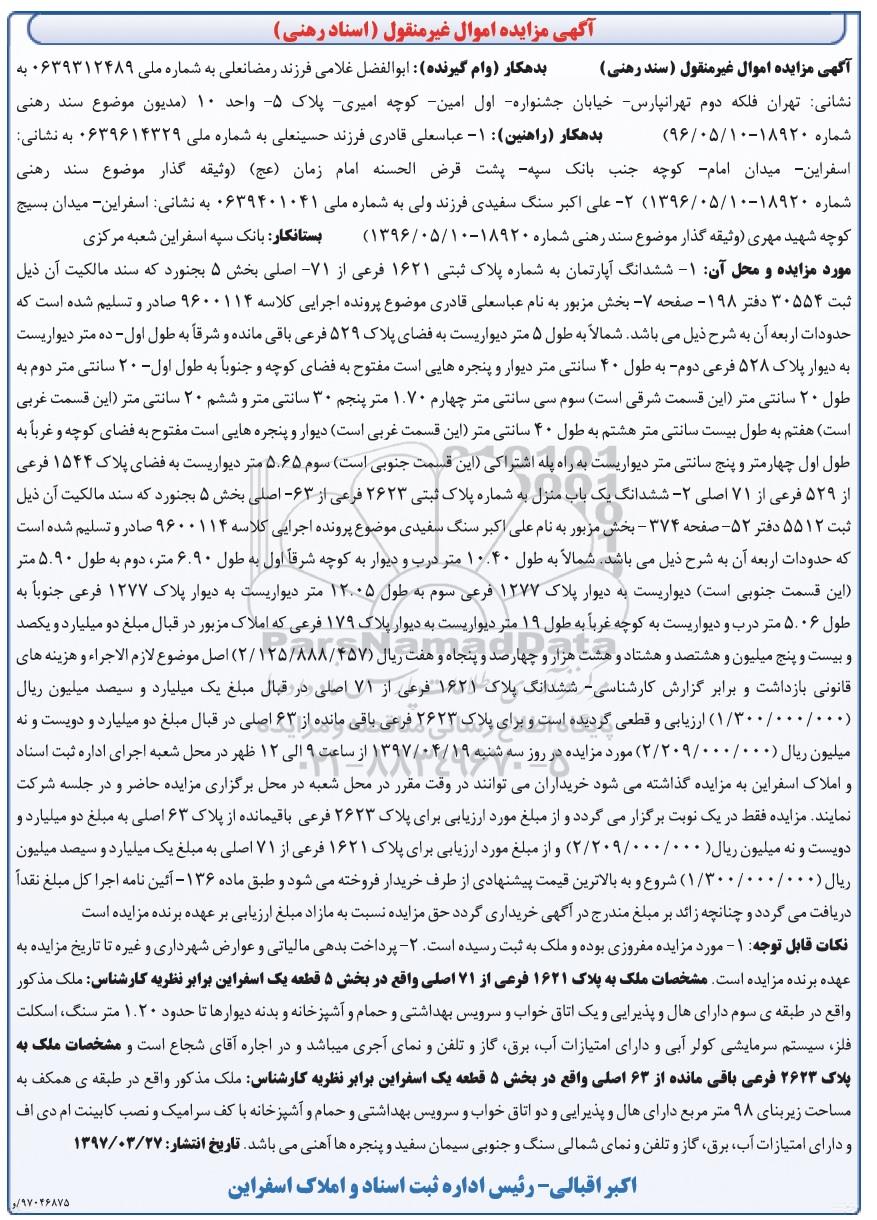 آگهی مزایده اموال غیرمنقول (اسناد رهنی)
آگهی مزایده اموال غیرمنقول (سند رهنی) بدهکار (وام گیرنده): ابوالفضل غلامی فرزند رمضانعلی به شماره ملی ۰۶۳۹۳۱۲۴۸۹ به
نشانی: تهران فلکه دوم تهرانپارس- خیابان جشنواره- اول امین- کوچه امیری- پلاک ۵- واحد ۱۰ (مدیون موضوع سند رهنی
شماره ۱۸۹۲۰-۹۶/۰۵/۱۰) بدهکار (راهنین): ۱- عباسعلی قادری فرزند حسینعلی به شماره ملی ۰۶۳۹۶۱۴۳۲۹ به نشانی:
اسفراین- میدان امام- کوچه جنب بانک سپه- پشت قرض الحسنه امام زمان (عج) (وثیقه گذار موضوع سند رهنی
شماره ۱۸۹۲۰-۱۳۹۶/۰۵/۱۰) ۲- علی اکبر سنگ سفیدی فرزند ولی به شماره ملی ۰۶۳۹۴۰۱۰۴۱ به نشانی: اسفراین- میدان بسیج
کوچه شهید مهری (وثیقه گذار موضوع سند رهنی شماره ۱۸۹۲۰-۱۳۹۶/۰۵/۱۰) بستانکار: بانک سپه اسفراین شعبه مرکزی
مورد مزایده و محل آن: ۱- ششدانگ آپارتمان به شماره پلاک ثبتی ۱۶۲۱ فرعی از ۷۱- اصلی بخش ۵ بجنورد که سند مالکیت آن ذیل
ثبت ۳۰۵۵۴ دفتر ۱۹۸- صفحه ۷- بخش مزبور به نام عباسعلی قادری موضوع پرونده اجرایی کلاسه ۹۶۰۰۱۱۴ صادر و تسلیم شده است که
حدودات اربعه آن به شرح ذیل می باشد. شمالاً به طول ۵ متر دیواریست به فضای پلاک ۵۲۹ فرعی باقی مانده و شرقاً به طول اول- ده متر دیواریست
به دیوار پلاک ۵۲۸ فرعی دوم- به طول ۴۰ سانتی متر دیوار و پنجره هایی است مفتوح به فضای کوچه و جنوباً به طول اول- ۲۰ سانتی متر دوم به
طول ۲۰ سانتی متر (این قسمت شرقی است) سوم سی سانتی متر چهارم ۱.۷۰ متر پنجم ۳۰ سانتی متر و ششم ۲۰ سانتی متر (این قسمت غربی
است) هفتم به طول بیست سانتی متر هشتم به طول ۴۰ سانتی متر (این قسمت غربی است) دیوار و پنجره هایی است مفتوح به فضای کوچه و غرباً به
طول اول چهارمتر و پنج سانتی متر دیواریست به راه پله اشتراکی (این قسمت جنوبی است) سوم ۵.۶۵ متر دیواریست به فضای پلاک ۱۵۴۴ فرعی
از ۵۲۹ فرعی از ۷۱ اصلی ۲- ششدانگ یک باب منزل به شماره پلاک ثبتی ۲۶۲۳ فرعی از ۶۳- اصلی بخش ۵ بجنورد که سند مالکیت آن ذیل
ثبت ۵۵۱۲ دفتر ۵۲- صفحه ۳۷۴ - بخش مزبور به نام علی اکبر سنگ سفیدی موضوع پرونده اجرایی کلاسه ۹۶۰۰۱۱۴ صادر و تسلیم شده است
که حدودات اربعه آن به شرح ذیل می باشد. شمالاً به طول ۱۰.۴۰ متر درب و دیوار به کوچه شرقاً اول به طول ۶.۹۰ متر، دوم به طول ۵.۹۰ متر
(این قسمت جنوبی است) دیواریست به دیوار پلاک ۱۲۷۷ فرعی سوم به طول ۱۲.۰۵ متر دیواریست به دیوار پلاک ۱۲۷۷ فرعی جنوباً به
طول ۵.۰۶ متر درب و دیواریست به کوچه غرباً به طول ۱۹ متر دیواریست به دیوار پلاک ۱۷۹ فرعی که املاک مزبور در قبال مبلغ دو میلیارد و یکصد
و بیست و پنج میلیون و هشتصد و هشتاد و هشت هزار و چهارصد و پنجاه و هفت ریال (۲/۱۲۵/۸۸۸/۴۵۷) اصل موضوع لازم الاجراء و هزینه های
قانونی بازداشت و برابر گزارش کارشناسی- ششدانگ پلاک ۱۶۲۱ فرعی از ۷۱ اصلی در قبال مبلغ یک میلیارد و سیصد میلیون ریال
(۱/۳۰۰/۰۰۰/۰۰۰) ارزیابی و قطعی گردیده است و برای پلاک ۲۶۲۳ فرعی باقی مانده از ۶۳ اصلی در قبال مبلغ دو میلیارد و دویست و نه
میلیون ریال (۲/۲۰۹/۰۰۰/۰۰۰) مورد مزایده در روز سه شنبه ۱۳۹۷/۰۴/۱۹ از ساعت ۹ الی ۱۲ ظهر در محل شعبه اجرای اداره ثبت اسناد
و املاک اسفراین به مزایده گذاشته می شود خریداران می توانند در وقت مقرر در محل شعبه در محل برگزاری مزایده حاضر و در جلسه شرکت
نمایند. مزایده فقط در یک نوبت برگزار می گردد و از مبلغ مورد ارزیابی برای پلاک ۲۶۲۳ فرعی باقیمانده از پلاک ۶۳ اصلی به مبلغ دو میلیارد و
دویست و نه میلیون ریال( ۲/۲۰۹/۰۰۰/۰۰۰) و از مبلغ مورد ارزیابی برای پلاک ۱۶۲۱ فرعی از ۷۱ اصلی به مبلغ یک میلیارد و سیصد میلیون
ریال (۱/۳۰۰/۰۰۰/۰۰۰) شروع و به بالاترین قیمت پیشنهادی از طرف خریدار فروخته می شود و طبق ماده ۱۳۶- آئین نامه اجرا کل مبلغ نقداً
دریافت می گردد و چنانچه زائد بر مبلغ مندرج در آگهی خریداری گردد حق مزایده نسبت به مازاد مبلغ ارزیابی بر عهده برنده مزایده است
نکات قابل توجه: ۱- مورد مزایده مفروزی بوده و ملک به ثبت رسیده است. ۲- پرداخت بدهی مالیاتی و عوارض شهرداری و غیره تا تاریخ مزایده به
عهده برنده مزایده است. مشخصات ملک به پلاک ۱۶۲۱ فرعی از ۷۱ اصلی واقع در بخش ۵ قطعه یک اسفراین برابر نظریه کارشناس: ملک مذکور
واقع در طبقه ی سوم دارای هال و پذیرایی و یک اتاق خواب و سرویس بهداشتی و حمام و آشپزخانه و بدنه دیوارها تا حدود ۱.۲۰ متر سنگ، اسکلت
فلز، سیستم سرمایشی کولر آبی و دارای امتیازات آب، برق، گاز و تلفن و نمای آجری میباشد و در اجاره آقای شجاع است و مشخصات ملک به
پلاک ۲۶۲۳ فرعی باقی مانده از ۶۳ اصلی واقع در بخش ۵ قطعه یک اسفراین برابر نظریه کارشناس: ملک مذکور واقع در طبقه ی همکف به
مساحت زیربنای ۹۸ متر مربع دارای هال و پذیرایی و دو اتاق خواب و سرویس بهداشتی و حمام و آشپزخانه با کف سرامیک و نصب کابینت ام دی اف
و دارای امتیازات آب، برق، گاز و تلفن و نمای شمالی سنگ و جنوبی سیمان سفید و پنجره ها آهنی می باشد. تاریخ انتشار: ۱۳۹۷/۰۳/۲۷
اکبر اقبالی- رئیس اداره ثبت اسناد و املاک اسفراین
۹۷۰۴۶۸۷۵/و
ParsNamadData
پایگاه اطلاع رسانی مناقصه و مزایده
۰۲۱-۸۸۳۴۹۶۷۰-۵